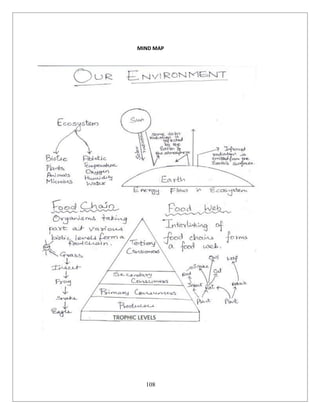 MIND MAP
OUR ENVIRONMENT
Ecosystem
Biotic
Plants
Animals
Microbes
Abiotic
Temperature
Oxygen
Humidity
Water
Sun
Solar
radiation
some solar
radiation is
reflected
by the
Earth &
the atmosphere
Infrared
radiation is
emitted from the
Earth's surface
Earth
Energy Flow in Ecosystem
Food Chain
Organisms taking
part at various
biotic levels form a
food chain.
Grass
Insect
Frog
Snake
Eagle
Tertiary
Consumers
Secondary
Consumers
Primary Consumers
Producers
TROPHIC LEVELS
Food Web
Interlinking of
food chains forms
a food web.
Owl
Wolf
Snake
Owl
Insect
Rat
Plant
Plant
108